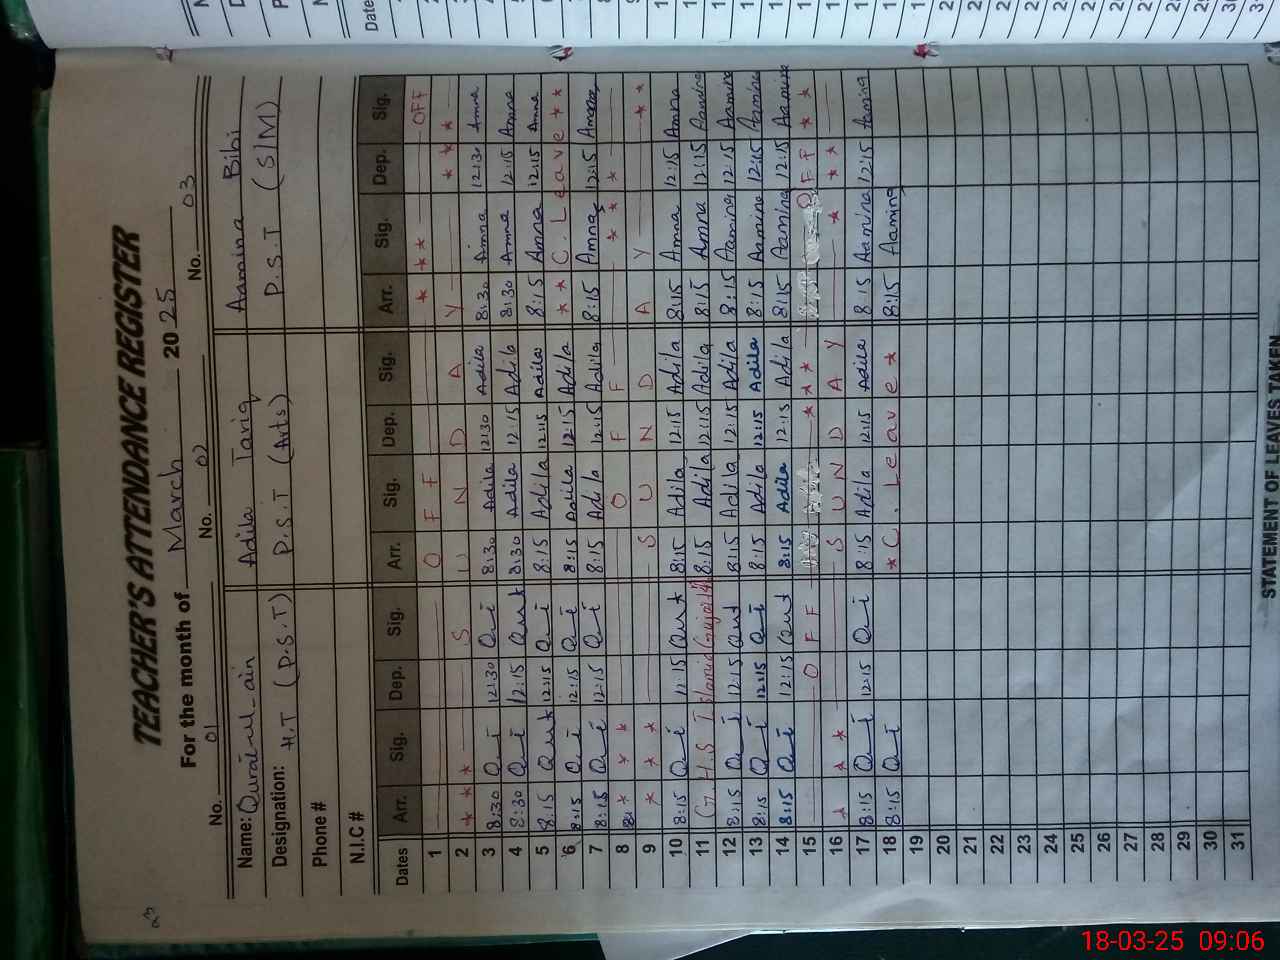 TEACHER'S ATTENDANCE REGISTER
For the month of March 2025
No. 01 No. 02 No. 03
Name: Quratul-ain Adila Tariq Aamina Bibi
Designation: H.T (P.S.T) P.S.T (Arts) P.S.T (S/M)
Phone #
N.I.C #
Dates Arr. Sig. Dep. Sig. Arr. Sig. Dep. Sig. Arr. Sig. Dep. Sig.
1 O F F * * * OFF
2 * * * S U N D A Y * * *
3 8:30 12:30 8:30 Adila 12:30 Adila 8:30 Amna 12:30 Amna
4 8:30 12:15 8:30 Adila 12:15 Adila 8:30 Amna 12:15 Amna
5 8:15 12:15 8:15 Adila 12:15 Adila 8:15 Amna 12:15 Amna
6 8:15 12:15 8:15 Adila 12:15 Adila * * C. Leave * *
7 8:15 12:15 8:15 Adila 12:15 Adila 8:15 Amna 12:15 Amna
8 8: * * * O F F * * *
9 * * * S U N D A Y * *
10 8:15 11:15 8:15 Adila 12:15 Adila 8:15 Amna 12:15 Amna
11 8:15 Adila 12:15 Adila 8:15 Amna 12:15 Aamina
12 8:15 12:15 8:15 Adila 12:15 Adila 8:15 Aamina 12:15 Aamina
13 8:15 12:15 8:15 Adila 12:15 Adila 8:15 Aamina 12:15 Aamina
14 8:15 12:15 8:15 Adila 12:15 Adila 8:15 Aamina 12:15 Aamina
15 O F F * * * O F F * *
16 * * * S U N D A Y * * *
17 8:15 12:15 8:15 Adila 12:15 Adila 8:15 Aamina 12:15 Aamina
18 8:15 * C. Leave * 8:15 Aamina
19
20
21
22
23
24
25
26
27
28
29
30
31
STATEMENT OF LEAVES TAKEN
18-03-25 09:06